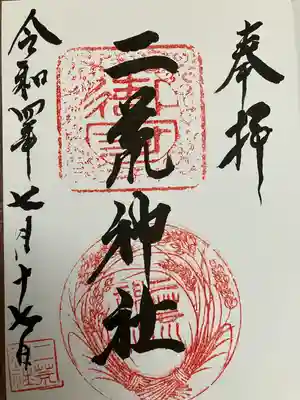 奉拝
二荒神社
令和四年七月十七日